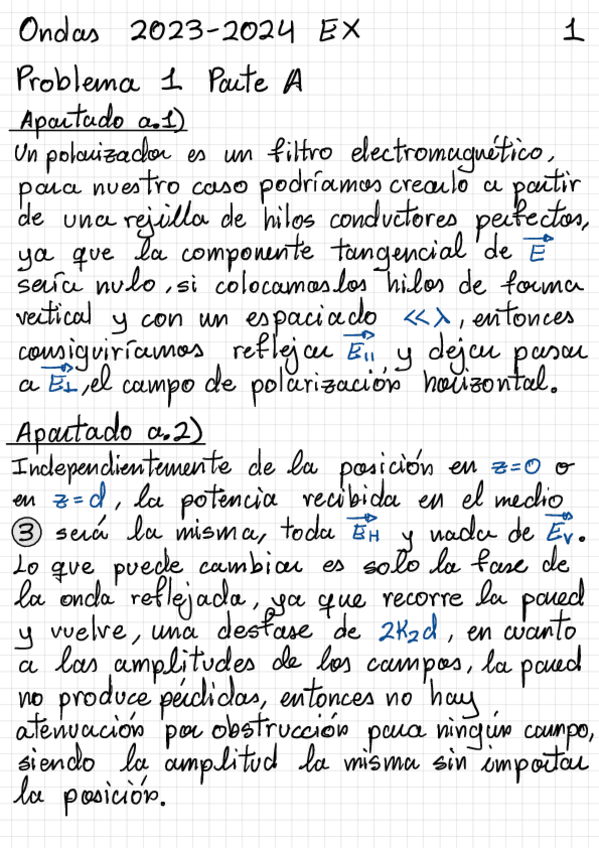 Ondas 2023-2024 EX 1
Problema 1 Parte A
Apartado a.1)
Un polarizador es un filtro electromagnético,
para nuestro caso podríamos crearlo a partir
de una rejilla de hilos conductores perfectos,
ya que la componente tangencial de E⃗
sería nulo, si colocamos los hilos de forma
vertical y con un espaciado <<λ, entonces
consiguiríamos reflejar E⃗₁₁ y dejar pasar
a E⃗⊥, el campo de polarización horizontal.
Apartado a.2)
Independientemente de la posición en z=0 o
en z=d, la potencia recibida en el medio
③ será la misma, toda E⃗H y nada de E⃗v.
Lo que puede cambiar es solo la fase de
la onda reflejada, ya que recorre la pared
y vuelve, una desfase de 2K₂d, en cuanto
a las amplitudes de los campos, la pared
no produce pérdidas, entonces no hay
atenuación por obstrucción para ningún campo,
siendo la amplitud la misma sin importar
la posición.